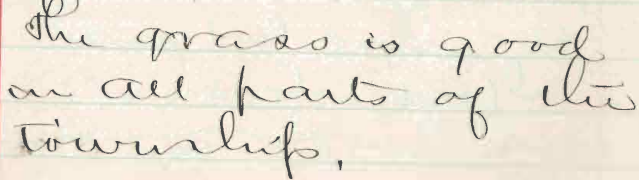 The grass is good
in all parts of the
township.